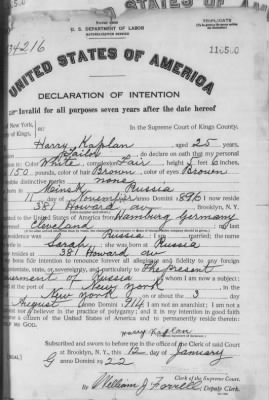 STATES OF AMERICA
TRIPLICATE
U. S. DEPARTMENT OF LABOR
NATURALIZATION SERVICE
34216
UNITED STATES OF AMERICA
DECLARATION OF INTENTION
Invalid for all purposes seven years after the date hereof
of New York,
of Kings,
ss:
In the Supreme Court of Kings County.
Harry Kaplan, aged 25 years,
Tailor, do declare on oath that my personal
is: Color White, complexion Fair, height 5 feet 6 inches,
150 pounds, color of hair Brown, color of eyes Brown
visible distinctive marks none
in Minsk Russia
11 day of November, anno Domini 1896; I now reside
381 Howard av, Brooklyn, N. Y.
United States of America from Hamburg Germany
Cleveland; my last
residence was Russia; I am married; the name
is Sarah; she was born at Russia
resides at 381 Howard av
bona fide intention to renounce forever all allegiance and fidelity to any foreign
potentate, state, or sovereignty, and particularly to The present
government of Russia, of whom I am now a subject;
at the port of New York, in the
New York, on or about the 3 day
August, anno Domini 1914; I am not an anarchist; I am not a
nor a believer in the practice of polygamy; and it is my intention in good faith
a citizen of the United States of America and to permanently reside therein:
ME GOD.
Harry Kaplan
Subscribed and sworn to before me in the office of the Clerk of said Court
at Brooklyn, N. Y., this 12 day of January
anno Domini 1922
[SEAL]
Clerk of the Supreme Court.
By William J. Farrell, Deputy Clerk.